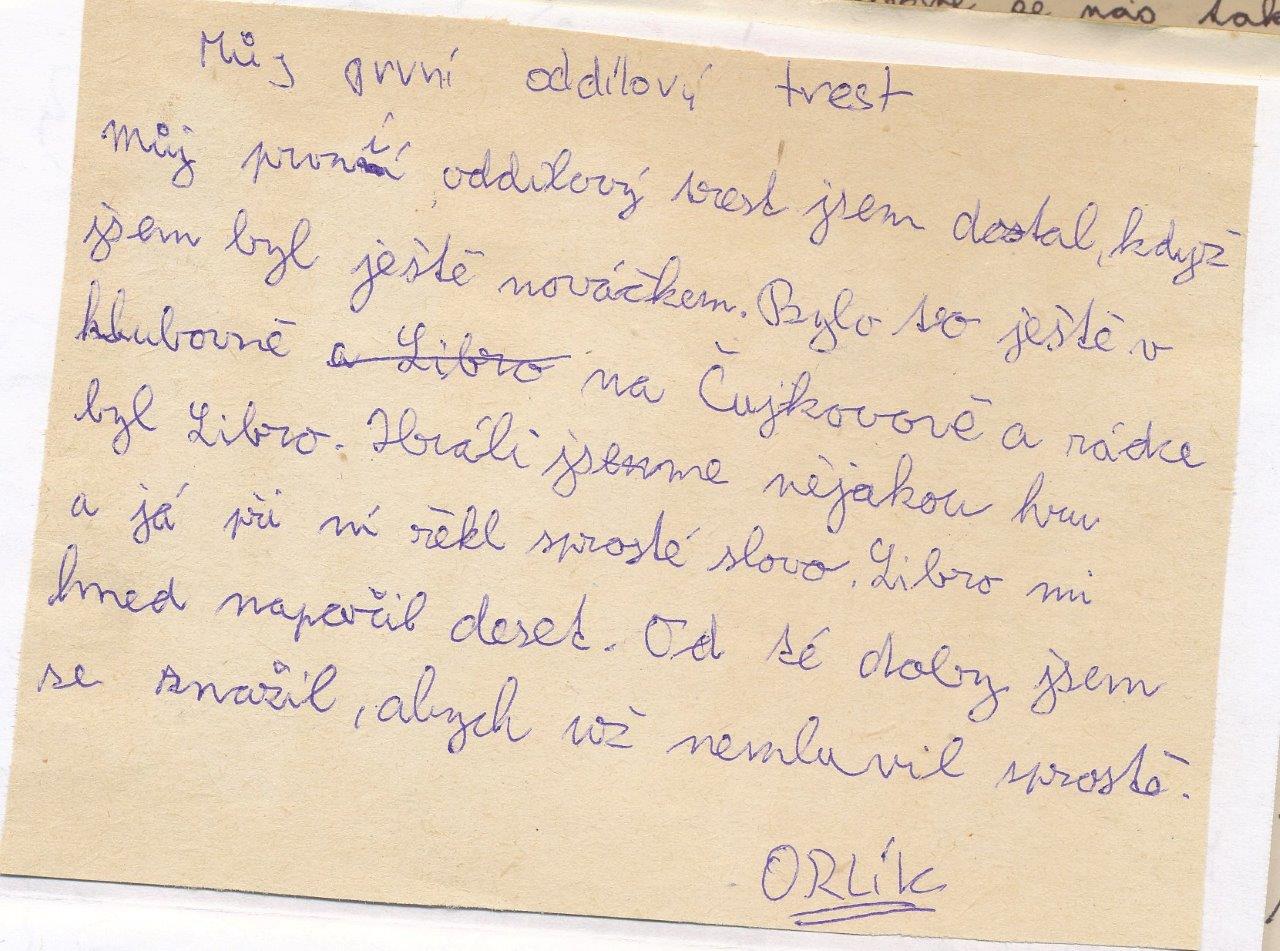 se nás tak
Můj první oddílový trest
Můj první oddílový trest jsem dostal, když
jsem byl ještě nováčkem. Bylo to ještě v
klubovně a Libro na Čujkovově a rádce
byl Libro. Hráli jsme nějakou hru
a já při ní řěkl sprosté slovo. Libro mi
hned napařil deset. Od té doby jsem
se snažil, abych už nemluvil sprostě.
ORLÍK